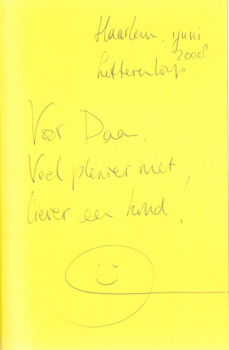 Haarlem, juni
2008
Letterenloop
Voor Daan.
Veel plezier met,
liever een hond!